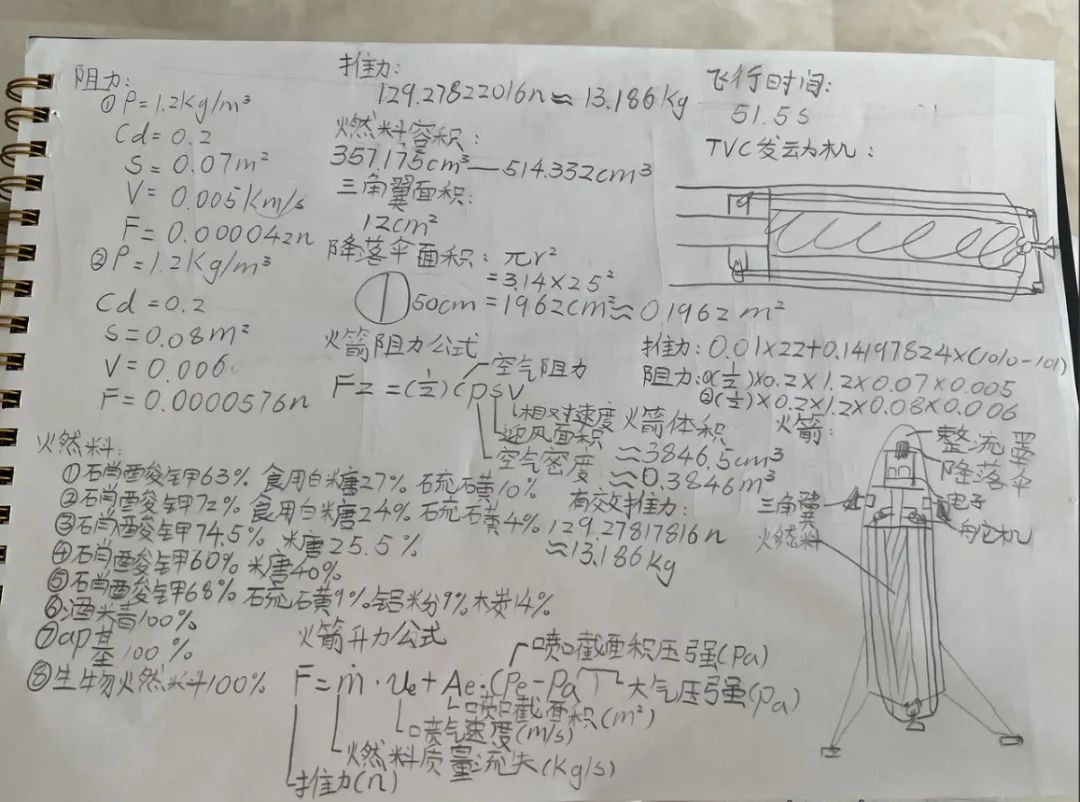 阻力:
① P=1.2Kg/m³
Cd=0.2
S=0.07m²
V=0.005Km/s
F=0.000042n
② P=1.2Kg/m³
Cd=0.2
S=0.08m²
V=0.006
F=0.0000576n
推力:
129.27822016n≈13.186Kg
燃料容积:
357.175cm³—514.332cm³
三角翼面积:
12cm²
降落伞面积: πr²
=3.14×25²
50cm =1962cm²≈0.1962m²
火箭阻力公式
Fz=(½)(psv
空气阻力
相对速度
迎风面积
空气密度
飞行时间:
51.5s
TVC发动机:
推力:0.01×22+0.14197824×(1010-101)
阻力:①(½)×0.2×1.2×0.07×0.005
②(½)×0.2×1.2×0.08×0.006
火箭体积
≈3846.5cm³
≈0.3846m³
有效推力:
129.27817816n
≈13.186Kg
火箭:
整流罩
降落伞
电子
舵机
三角翼
燃料
燃料:
①硝酸钾63% 食用白糖27% 硫磺10%
②硝酸钾72% 食用白糖24% 硫磺4%
③硝酸钾74.5% 糖25.5%
④硝酸钾60% 糖40%
⑤硝酸钾68% 硫磺9% 铝粉9% 木炭14%
⑥酒精100%
⑦ap基100%
⑧生物燃料100%
火箭升力公式
F=ṁ·Ue+Ae·(Pe-Pa)
喷口截面积压强(Pa)
大气压强(pa)
喷口截面积(m²)
喷气速度(m/s)
燃料质量流失(Kg/s)
推力(n)